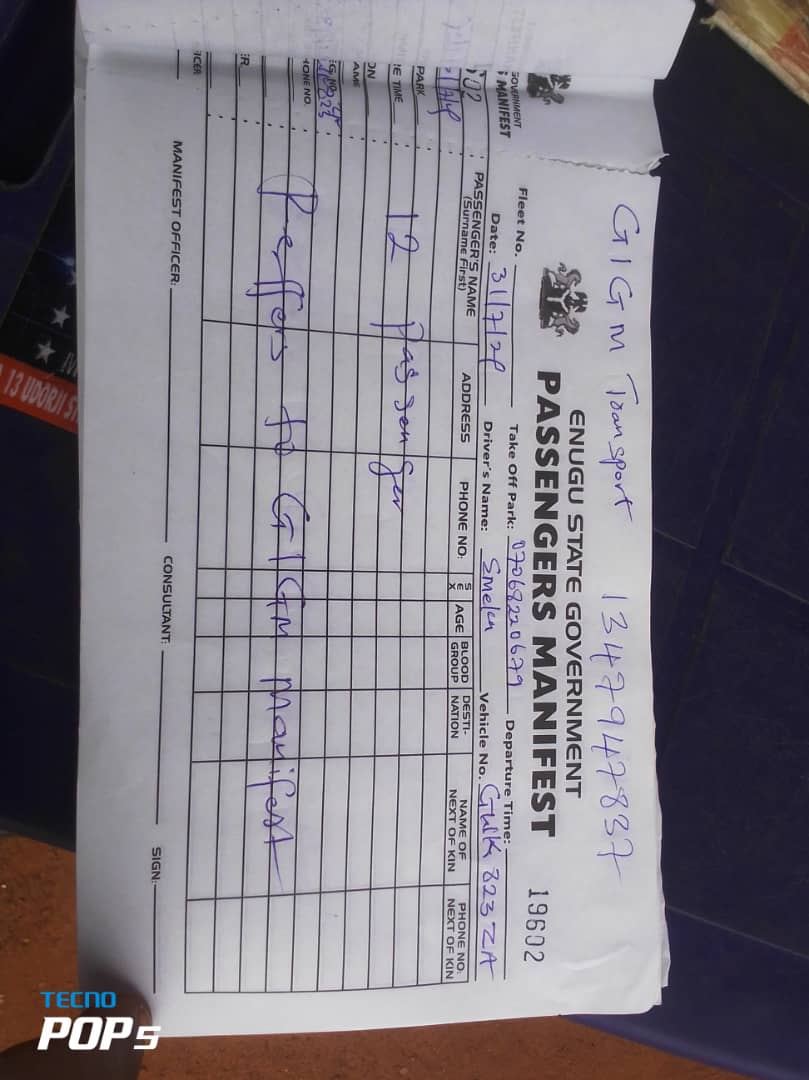 GIGM Transport 1347947837
ENUGU STATE GOVERNMENT
PASSENGERS MANIFEST 19602
Fleet No. Take Off Park: 07068220679 Departure Time:
Date: 31/7/24 Driver's Name: Emeka Vehicle No. GWK 823 ZA
PASSENGER'S NAME (Surname First) ADDRESS PHONE NO. SEX AGE BLOOD GROUP DESTI-NATION NAME OF NEXT OF KIN PHONE NO. NEXT OF KIN
12 Passenger
Reffers to GIGM Manifest
MANIFEST OFFICER: CONSULTANT: SIGN:
GOVERNMENT
MANIFEST
PARK
E TIME
ON
AME
HONE NO.
ICER
13 UDORJI ST
TECNO
POP5